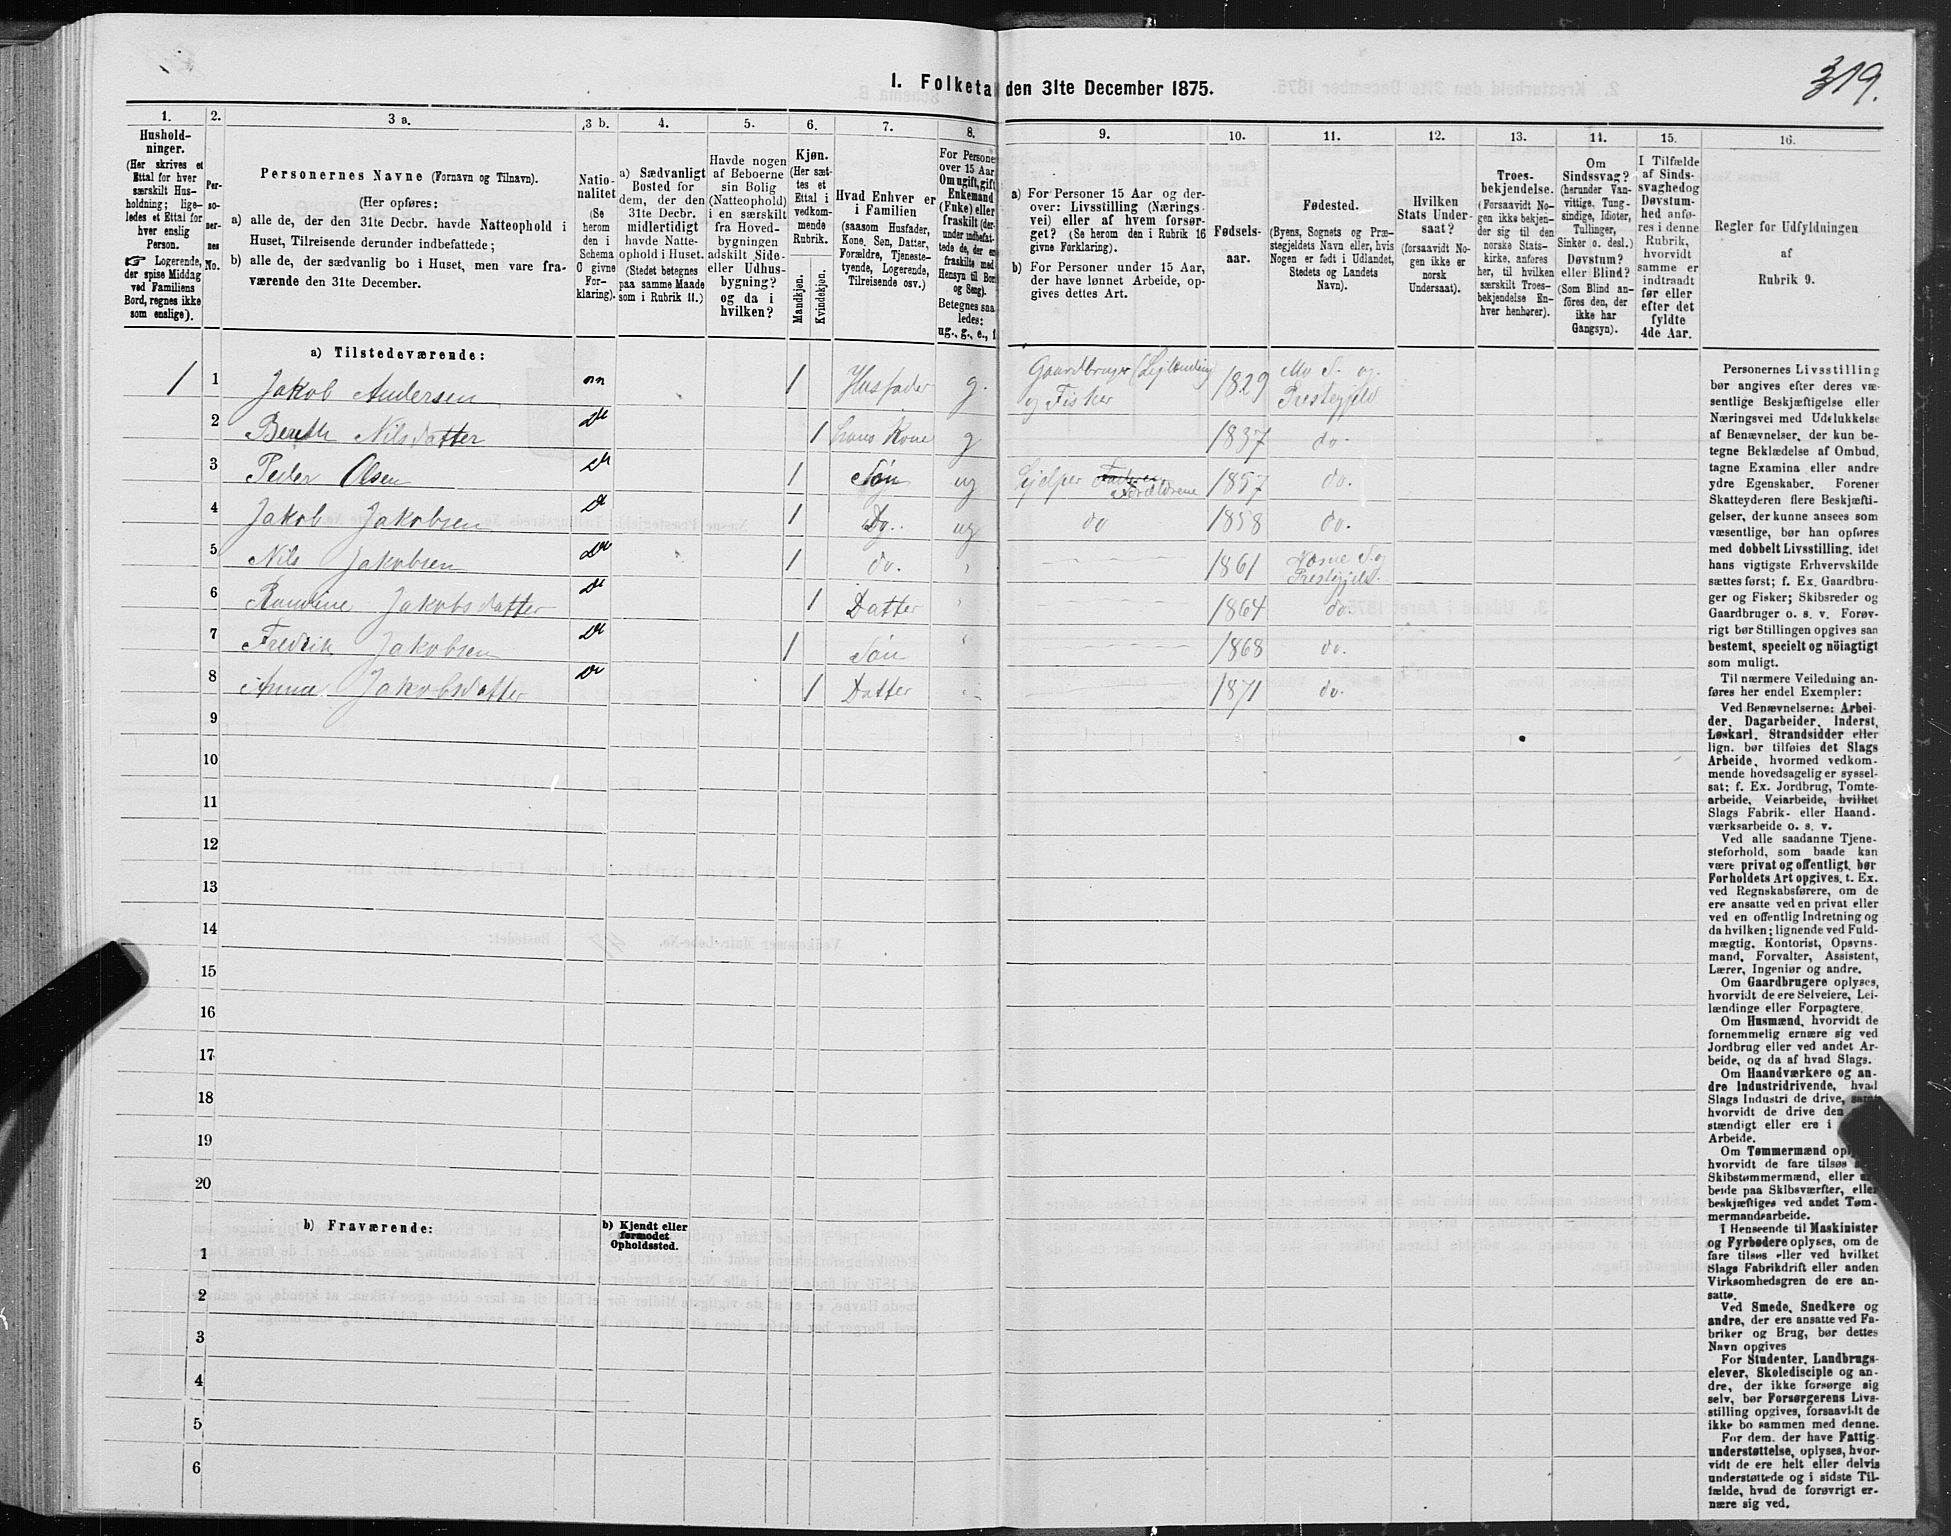 319.
I. Folketa den 31te December 1875.
1. 2. 3 a. 3 b. 4. 5. 6. 7. 8. 9. 10. 11. 12. 13. 14. 15. 16.
Hushold-
ninger.
(Her skrives et
Ettal for hver
særskilt Hus-
holdning; lige-
ledes et Ettal for
hver enslig
Person.
☞ Logerende,
der spise Middag
ved Familiens
Bord, regnes ikke
som enslige).
Per-
so-
ner-
nes
No.
Personernes Navne (Fornavn og Tilnavn).
(Her opføres:
a) alle de, der den 31te Decbr. havde Natteophold i
Huset, Tilreisende derunder indbefattede;
b) alle de, der sædvanlig bo i Huset, men vare fra-
værende den 31te December.
Natio-
nalitet
(Se
herom
den i
Schema
O givne
For-
klaring).
a) Sædvanligt
Bosted for
dem, der den
31te Decbr.
midlertidigt
havde Natte-
ophold i Huset.
(Stedet betegnes
paa samme Maade
som i Rubrik 11.)
Havde nogen
af Beboerne
sin Bolig
(Natteophold)
i en særskilt
fra Hoved-
bygningen
adskilt Side-
eller Udhus-
bygning?
og da i
hvilken?
Kjøn.
(Her sæt-
tes et
Ettal i
vedkom-
mende
Rubrik.
Mandkjøn.
Kvindekjøn.
Hvad Enhver er
i Familien
(saasom Husfader,
Kone, Søn, Datter,
Forældre, Tjeneste-
tyende, Logerende,
Tilreisende osv.)
For Persone
over 15 Aar
Om ugift, gift,
Enkemand
(Enke) eller
fraskilt (der-
under indbefat-
tede de, der er
fraskilte med
Hensyn til Bor
og Seng).
Betegnes saa
ledes:
ug., g., e., f
a) For Personer 15 Aar og der-
over: Livsstilling (Nærings-
vei) eller af hvem forsør-
get? (Se herom den i Rubrik 16
givne Forklaring).
b) For Personer under 15 Aar,
der have lønnet Arbeide, op-
gives dettes Art.
Fødsels-
aar.
Fødested.
(Byens, Sognets og Præ-
stegjeldets Navn eller, hvis
Nogen er født i Udlandet,
Stedets og Landets
Navn).
Hvilken
Stats Under-
saat?
(forsaavidt No-
gen ikke er
norsk
Undersaat).
Troes-
bekjendelse.
(Forsaavidt No-
gen ikke bekjen-
der sig til den
norske Stats-
kirke, anføres
her, til hvilken
særskilt Troes-
bekjendelse En-
hver henhører).
Om
Sindssvag?
(herunder Van-
vittige, Tung-
sindige, Idioter,
Tullinger,
Sinker o. desl.)
Døvstum?
eller Blind?
(Som Blind an-
føres den, der
ikke har
Gangsyn).
I Tilfælde
af Sinds-
svaghed og
Døvstum-
hed anfø-
res i denne
Rubrik,
hvorvidt
samme er
indtraadt
før eller
efter det
fyldte
4de Aar.
Regler for Udfyldningen
af
Rubrik 9.
a) Tilstedeværende:
1 1 Jakob Andersen nn 1 Husfader g. Gaardbruger (Lejlænding) og Fisker 1829 Mo S. og Prestegjeld
2 Berith Nilsdatter Do 1 hans Kone g 1837 do.
3 Peder Olsen Do 1 Søn ug hjelper Faderen Forældrene 1857 do.
4 Jakob Jakobsen Do 1 Do. ug do 1858 do.
5 Nils Jakobsen Do 1 do. 1861 Næsne S. og Prestegjeld.
6 Jakobsdatter Do 1 Datter 1864 do.
7 Fredrik Jakobsen Do 1 Søn 1868 do.
8 Anna Jakobsdatter Do 1 Datter 1871 do.
9
10
11
12
13
14
15
16
17
18
19
20
b) Fraværende: b) Kjendt eller
formodet
Opholdssted.
1
2
3
4
5
6
Personernes Livsstilling
bør angives efter deres væ-
sentlige Beskjæftigelse eller
Næringsvei med Udelukkelse
af Benævnelser, der kun be-
tegne Beklædelse af Ombud,
tagne Examina eller andre
ydre Egenskaber. Forener
Skatteyderen flere Beskjæfti-
gelser, der kunne ansees som
væsentlige, bør han opføres
med dobbelt Livsstilling, idet
hans vigtigste Erhvervskilde
sættes først; f. Ex. Gaardbru-
ger og Fisker; Skibsreder og
Gaardbruger o. s. v. Forøv-
rigt bør Stillingen opgives saa
bestemt, specielt og nöiagtigt
som muligt.
Til nærmere Veiledning an-
føres her endel Exempler:
Ved Benævnelserne: Arbei-
der, Dagarbeider, Inderst,
Løskarl, Strandsidder eller
lign. bør tilføies det Slags
Arbeide, hvormed vedkom-
mende hovedsagelig er syssel-
sat; f. Ex. Jordbrug, Tomte-
arbeide, Veiarbeide, hvilket
Slags Fabrik- eller Haand-
værksarbeide o. s. v.
Ved alle saadanne Tjene-
steforhold, som baade kan
være privat og offentligt, bør
Forholdets Art opgives, f. Ex.
ved Regnskabsførere, om de
ere ansatte ved en privat eller
ved en offentlig Indretning og
da hvilken; lignende ved Fuld-
mægtig, Kontorist, Opsyns-
mand, Forvalter, Assistent,
Lærer, Ingeniør og andre.
Om Gaardbrugere oplyses,
hvorvidt de ere Selveiere, Lei-
lændinge eller Forpagtere.
Om Husmænd, hvorvidt de
fornemmelig ernære sig ved
Jordbrug eller ved andet Ar-
beide, og da af hvad Slags.
Om Haandværkere og an-
dre Industridrivende, hvad
Slags Industri de drive, samt
hvorvidt de drive den
stændigt eller ere i
Arbeide.
Om Tømmermænd oply
hvorvidt de fare tilsøs
Skibstømmermænd, eller ar-
beide paa Skibsværfter, eller
beskjæftiges ved andet Tøm-
mermandsarbeide.
I Henseende til Maskinister
og Fyrbødere oplyses, om de
fare tilsøs eller ved hvilket
Slags Fabrikdrift eller anden
Virksomhedsgren de ere an-
satte.
Ved Smede, Snedkere og
andre, der ere ansatte ved Fa-
briker og Brug, bør dettes
Navn opgives
For Studenter, Landbrugs-
elever, Skoledisciple og an-
dre, der ikke forsørge sig
selv, bør Forsørgerens Livs-
stilling opgives, forsaavidt de
ikke bo sammen med denne.
For dem, der have Fattig-
understøttelse, oplyses, hvor-
vidt de ere helt eller delvis
understøttede og i sidste Til-
fælde, hvad de forøvrigt er-
nære sig ved.